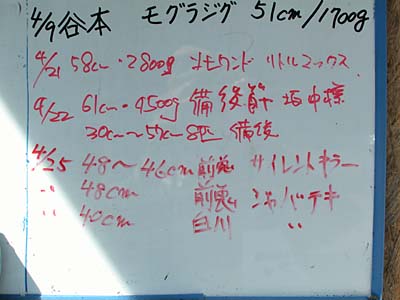 4/9 谷本 モグラジグ 51cm/1700g
4/21 58cm・2800g リトルマックス
4/22 61cm・4500g 備後
30cm〜57cm 8匹 備後
4/25 48〜46cm サイレントキラー
〃 48cm ジャバデキ
〃 40cm 白川 〃